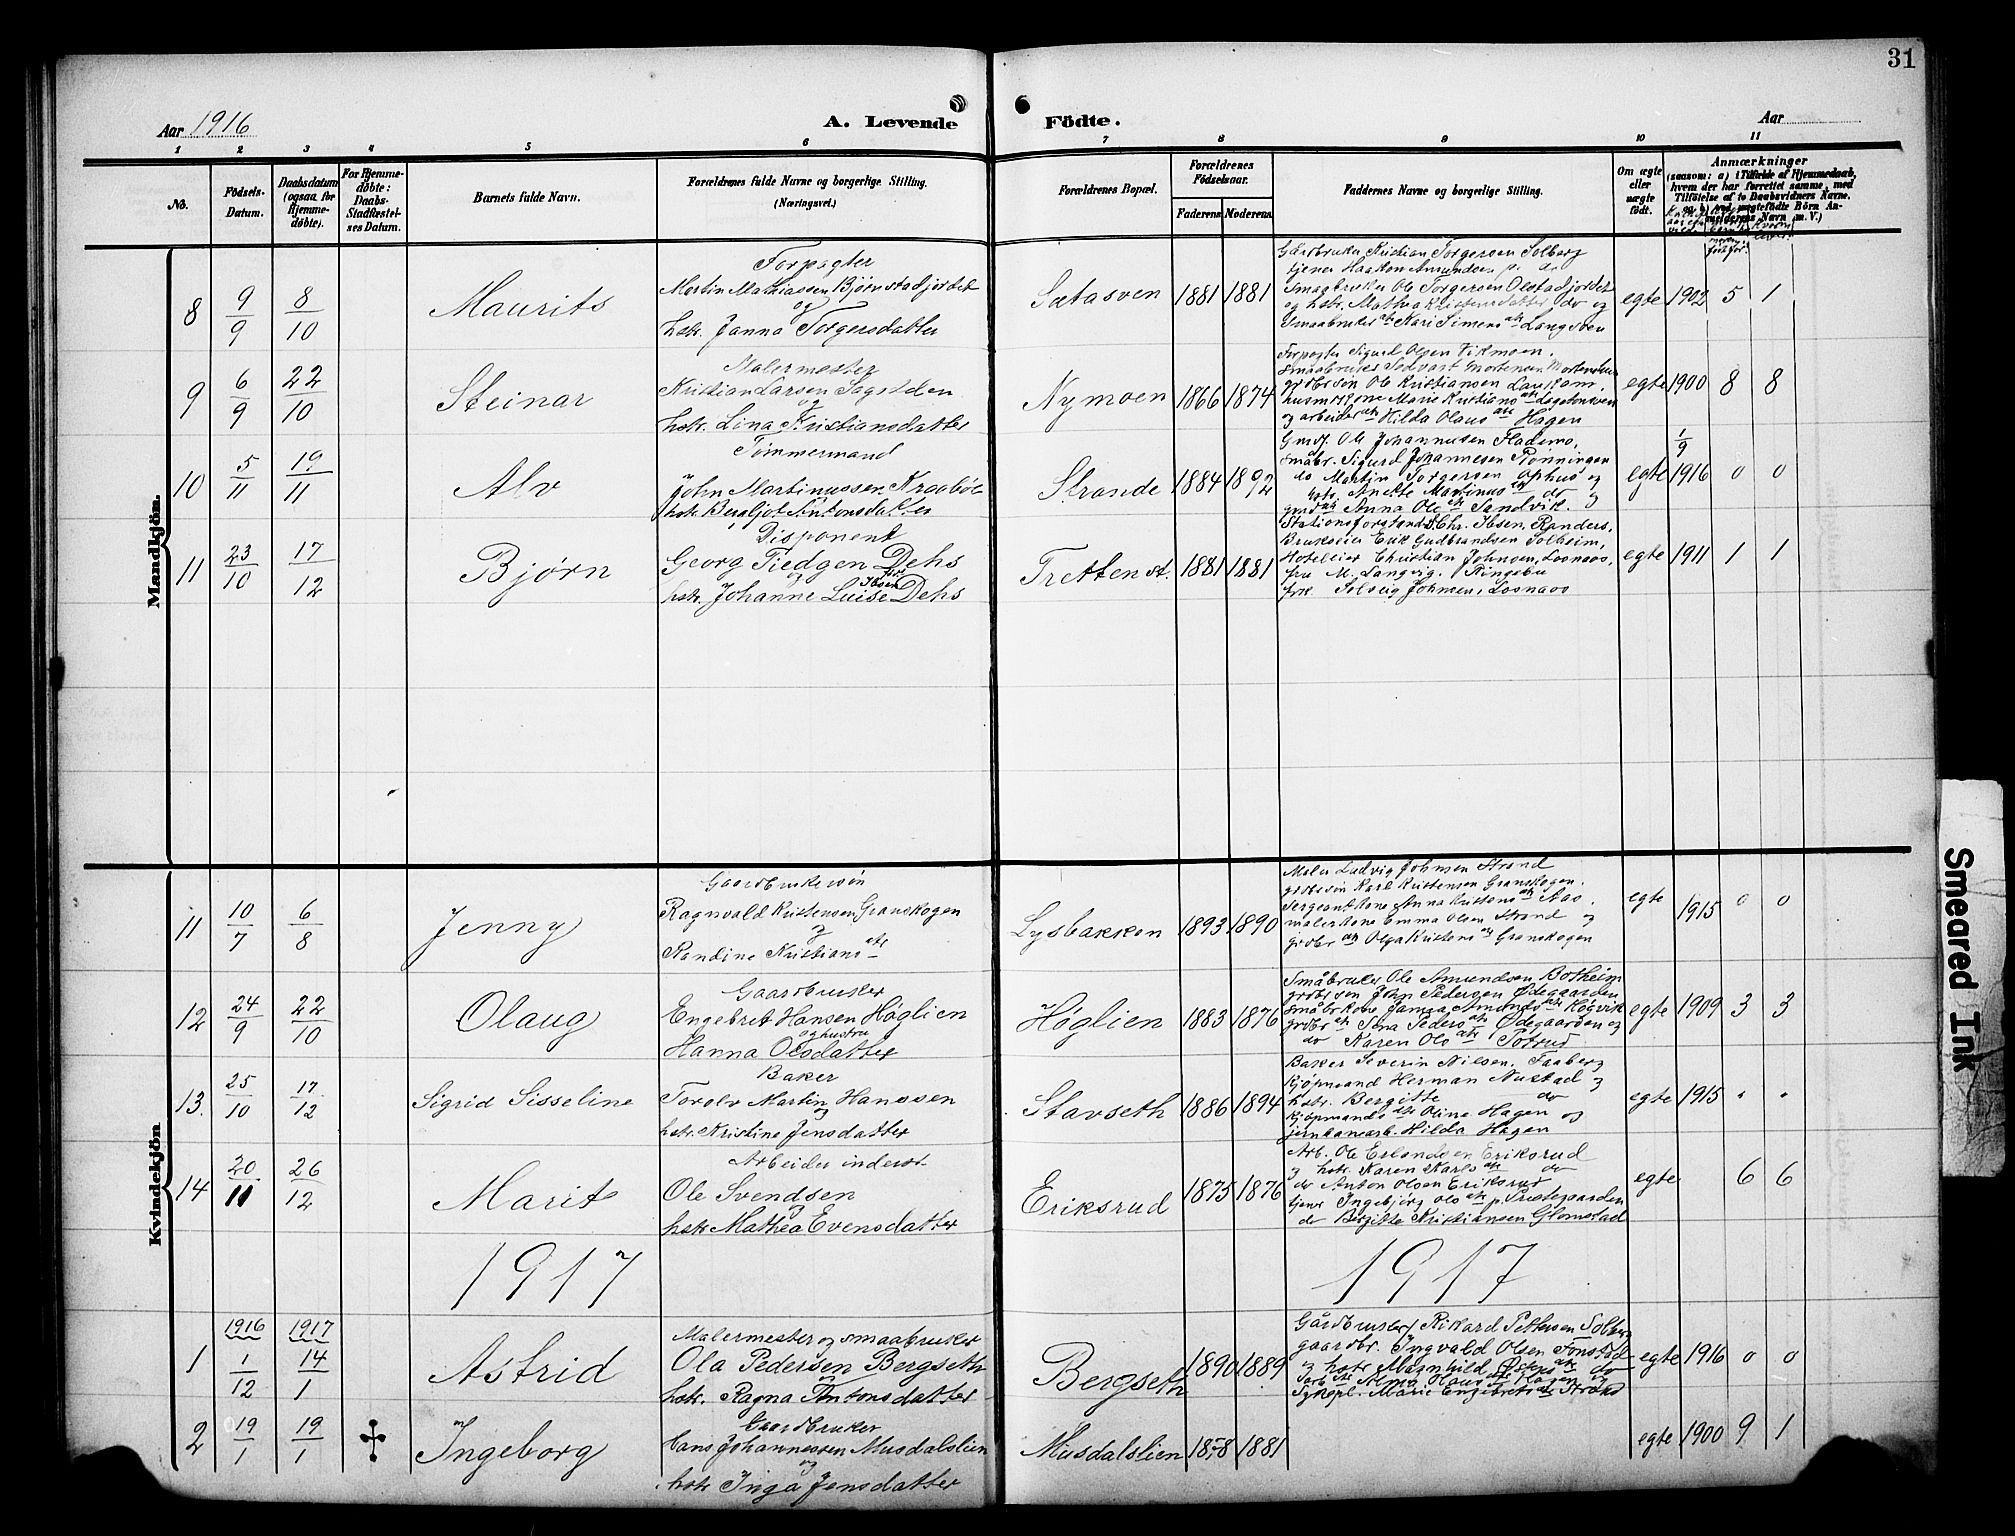 31
Aar 1916
A. Levende
Födte.
Aar
1 2 3 4 5 6 7 8 9 10 11
No.
Födsels-Datum.
Daabsdatum (ogsaa for Hjemmedöbte).
For Hjemmedøbte: Daabs-Stadfæstelses Datum.
Barnets fulde Navn.
Forældrenes fulde Navne og borgerlige Stilling.
(Næringsvei.)
Forældrenes Bopæl.
Forældrenes Födselsaar.
Faderens
Moderens
Faddernes Navne og borgerlige Stilling.
Om ægte eller uægte födt.
Anmærkninger
(saasom: a) i Tilfælde af Hjemmedaab, hvem der har forrettet samme, med Tilföielse af to Daabsvidners Navne,
Mandkjön.
8 9/9 8/10
Maurits
Forpagter
Martin Mathiassen Bjørnstadjordet
og
hstr. Janna Torgersdatter
Sætasven
1881 1881
Gårdbruker Kristian Torgersen Solberg
tjener Haakon Amundsen p. do
Smaabruker Ole Torgersen Olstadjordet
og hstr. Mathea Kristensdatter do og
Smaabruker dtr Kari Simens dtr Langsven
egte 1902 5 1
9 6/9 22/10
Steinar
Malermester
Kristian Larsen Sagstden
og
hstr. Lina Kristiansdatter
Nymoen
1866 1874
Forpagter Sigurd Olsen Vikmoen.
grdbr søn Ole Kristiansen
og arbeider dtr Hilda Olaus dtr Hagen
egte 1900 8 8
10 5/11 19/11
Alv
Tømmermand
John Martinussen Kraabøl
hstr. Bergljot Antonsdatter
Strande
1884 1892
Gmdf. Ole Johannesen Flademo,
småbr. Sigurd Johannesen Rønningen
do Martin Torgersen Ophus og
hstr. Anette Martinus dtr do og
gmd dtr Anna Ols dtr Sandvik.
egte 1/9 1916 0 0
11 23/10 17/12
Bjørn
Disponent
Georg Tiedgen Dehs
og
hstr. Johanne Luise Ibsen Dehs
Tretten st.
1881 1881
Stationsforstander Chr. Ibsen, Randers,
Brukseier Erik Gudbrandsen Solheim,
Hotelleier Christian Johnsen, Losnaos,
fru M. Langvig, Ringebu
frk. Solveig Johnsen, Losnaos
egte 1911 1 1
Kvindekjön
11 10/7 6/8
Jenny
Gaardbrukersøn
Ragnvald Kristensen Granskogen
og
Randine Kristians dtr
Lysbakken
1893 1890
Maler Ludvig Johnsen Strand
grdbrsøn Karl Kristensen Granskogen.
Sergeantkone Anna Kristens dtr Aas.
malerkone Emma Olsen Strand og
grdbr dtr Olga Kristens dtr Granskogen
egte 1915 0 0
12 24/9 22/10
Olaug
Gaardbruker
Engebret Hansen Høglien
og hustru
Hanna Olsdatter
Høglien
1883 1876
Småbruker Ole Amundsen Botheim
grdbr søn John Pedersen Ødegaarden
Småbrkone Janna Amunds dtr Høgvik
grdbr dtr Sina Peders dtr Ødegaarden og
do Karen Ols dtr Potrud
egte 1909 3 3
13. 25/10 17/12
Sigrid Sisseline
Baker
Torolv Martin Hanssen
og
hstr. Kristine Jensdatter
Stavseth
1886 1894
Baker Severin Nilsen, Faaberg
Kjøpmand Herman Nustad og
hstr. Bergitte do
Kjøpmands dtr Oline Hagen og
jernbanearb. Hilda Hagen
egte 1915 " "
14 20/11 26/12
Marit
Arbeider inderst
Ole Svendsen
og
hstr Mathea Evensdatter
Eriksrud
1875 1876
Arb. Ole Erlandsen Eriksrud
og hstr. Karen Karls dtr do
do Anton Olsen Eriksrud
tjener Ingebjørg Ols dtr p. Prestegaarden
do Bergitte Kristiansen Glomstad
egte 6 6
1917
1917
1916 1917
1 1/12 14/1
Astrid
Malermester og smaabruker
Ola Pedersen Bergseth
og
hstr. Ragna Antonsdatter
Bergseth
1890 1889
Gårdbruker Rikard Pettersen Solberg
gaardbr. Ingvald Olsen Fonstad
og hstr. Magnhild dtr do
Alma Olaus dtr Hagen og
Sykepl. Marie Engebrets dtr Strand
egte 1916 0 0
2 19/1 19/1
Ingeborg
Gaardbruker
Hans Johannessen Musdalslien
og
hstr Inga Jensdatter
Musdalslien
1858 1881
egte 1900 9 1
Smeared Ink